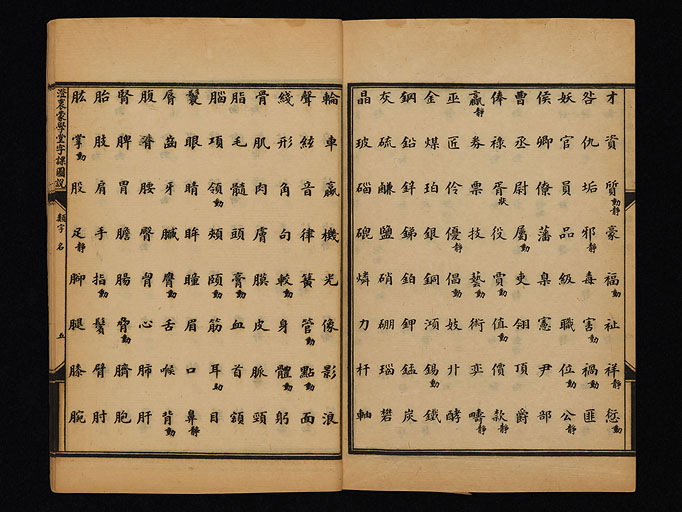 才資質動靜豪福動祉祥靜愆動
咎仇垢邪靜毒害動禍動匪
妖官員品級職位動公靜
侯卿僚藩臬憲尹部
曹丞尉屬動吏翎頂爵
俸祿胥狀役賞動值動償款靜
贏靜券票技藝動術弈疇靜
巫匠伶優靜倡動妓卝酵
金煤珀銀銅澒錫動鐵
鋼鉛鋅銻鉑鉀錳炭
灰硫鹻鹽硝硼瑙礬
晶玻碯硯燐力杆軸
輪車蠃機光像影浪
聲絃音律簧管動點動面
綫形角句較動身體動躬
骨肌肉膚膜皮脈頸
脂毛髓頭膏動血首頷
腦項領動頰頤動筋耳動目
鬟眼睛眸瞳眉口鼻靜
脣齒牙臟膺動舌喉背動
腹脊腰臀胃心肺肝
腎脾胃膽腸脅動臍胞
胎肢肩手指動鬚臂肘
肱掌動股足靜腳腿膝腕
澄衷蒙學堂字課圖說
類字 名
五